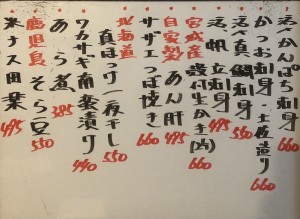 活〆かんぱち刺身 660
かつお刺身・土佐造り 660
活〆真鯛刺身 550
活帆立刺身 495
宮城産殻付生かき(2ヶ) 660
自家製あん肝 495
サザエつぼ焼き 660
北海道真ほっけ一夜干し 550
ワカサギ南蛮漬け 440
あら煮 385
鹿児島そら豆 550
米ナス田楽 495